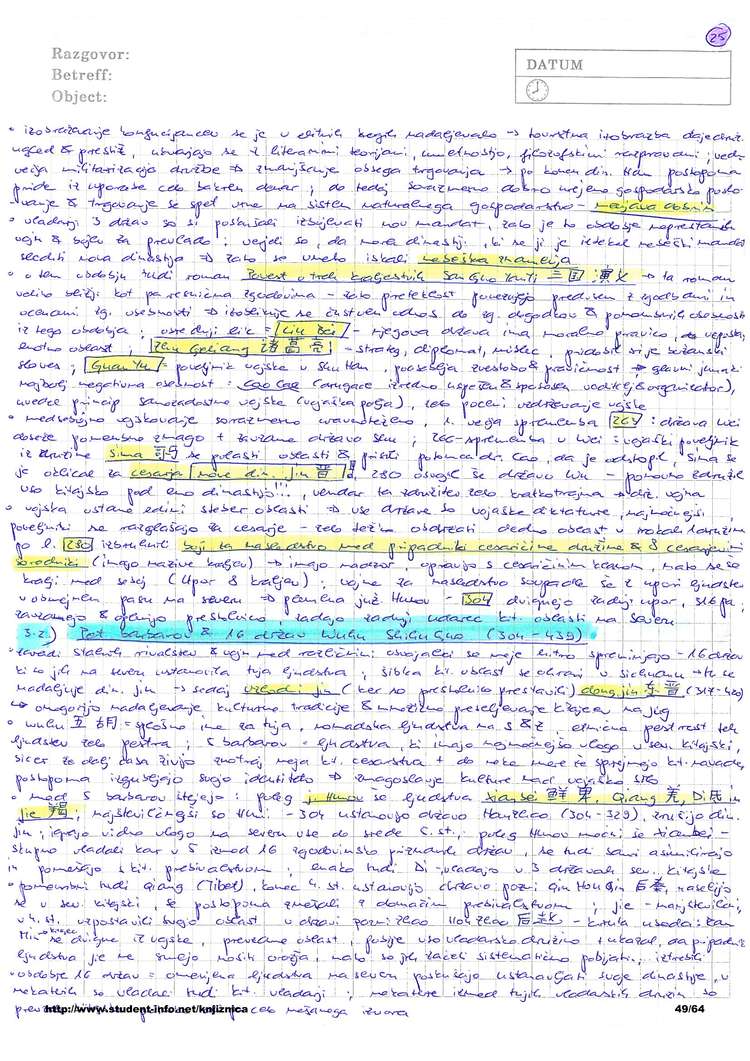 25
Razgovor:
Betreff:
Object:
DATUM
• izobraževanje konfucijancev se je v elitnih krogih nadaljevalo → tovrstna izobrazba daje družini
ugled & prestiž, ukvarjajo se z literarnimi teorijami, umetnostjo, filozofskimi razpravami; vedno
večja militarizacija družbe → zmanjšanje obsega trgovanja → po koncu din. Han postopoma
pride iz uporabe celo bakren denar; do tedaj sorazmerno dobro urejeno gospodarsko poslo-
vanje & trgovanje se spet vrne na sistem naturalnega gospodarstva – menjava dobrin
• vladarji 3 držav so si poskušali izbojevati nov mandat, zato je to obdobje neprestanih
vojn & bojev za prevlado; verjeli so, da mora dinastiji, ki se ji je iztekel nebeški mandat
slediti nova dinastija → zato so vneto iskali nebeška znamenja
• o tem obdobju tudi roman Povest o treh kraljestvih San Guo Yanyi 三国演义 → ta roman
veliko bližji kot pa resnična zgodovina – zato preteklost povezujejo predvsem z zgodbami in
ocenami zg. osebnosti → izoblikuje se čustven odnos do zg. dogodkov & pomembnih osebnosti
iz tega obdobja; osrednji lik = Liu Bei – njegova država ima moralno pravico, da vzpostavi
enotno oblast; Zhu Geliang 諸葛亮 – strateg, diplomat, mislec, pridobil si je božanski
sloves; Guan Yu = poveljnik vojske v Shu Han, poseblja zvestobo & pravičnost → glavni junaki
najbolj negativna osebnost: Cao Cao (drugače izredno uspešen & sposoben voditelj & organizator),
uvede princip samozadostne vojske (vojaška polja), zelo poceni vzdrževanje vojske
• medsebojno vojskovanje sorazmerno uravnoteženo, 1. večja sprememba 263: država Wei
doseže pomembno zmago + zavzame državo Shu; 265 – sprememba v Wei: vojaški poveljnik
iz družine Sima 司马 se polasti oblasti & prisili potomca dr. Cao, da je odstopil, Sima se
je oklical za cesarja nove din. Jin 晋, 280 osvoji še državo Wu – ponovno združil
vso Kitajsko pod eno dinastijo!!!, vendar ta združitev zelo kratkotrajna → drž. vojna
• vojska ostane edini steber oblasti → vse države so vojaške diktature, najmočnejši
poveljniki se razglašajo za cesarje – zelo težko obdržati dedno oblast v rokah 1 družine
po l. 280 izbruhnili boji za nasledstvo med pripadniki cesaričine družine & 8 cesarjevimi
sorodniki (imajo nazive kraljev) → imajo nadzor, opravijo s cesaričinim klanom, nato se so
kralji med seboj (Upor 8 kraljev); vojne za nasledstvo sovpadle še z upori ljudstev
v obmejnem pasu na severu → plemena juž. Hunov – 304 dvignejo zadnji upor, 316 pa
zavzamejo & oplenijo prestolnico, zadajo zadnji udarec kit. oblasti na severu
3.2.) Pet barbarov & 16 držav Wuhu Shiliu Guo (304-439)
• zaradi stalnih rivalstev & vojn med različnimi osvajalci so meje hitro spreminjajo – 16 držav
ki so jih na severu ustanovila tuja ljudstva; šibka kit. oblast se ohrani v Sichuanu → tu se
nadaljuje din. Jin → sedaj vzhodni Jin (ker so prestolnico prestavili) dong jin 东晋 (317-420)
↳ omogočijo nadaljevanje kulturne tradicije & množično preseljevanje Kitajcev na jug
• wuhu 五胡 = splošno ime za tuja, nomadska ljudstva na S & Z, etnična pestrost teh
ljudstev zelo pestra; 5 barbarov = ljudstva, ki imajo najmočnejšo vlogo v sev. Kitajski,
sicer že delj časa živijo znotraj meja kit. cesarstva + do neke mere že sprejmejo kit. navade,
postopoma izgubljajo svojo identiteto → zmagoslavje kulture nad vojaško silo
• med 5 barbarov štejejo: poleg j. Hunov še ljudstva Xianbei 鲜卑, Qiang 羌, Di 氐 in
Jie 羯; najštevilčnejši so Huni – 304 ustanovijo državo Han Zhao (304-329), zrušijo din.
Jin; igrajo vidno vlogo na severu vse do srede 5. st.; poleg Hunov močni še Xianbei –
skupno vladali kar v 5 izmed 16 zgodovinsko priznanih držav, se tudi sami asimilirajo
in pomešajo s kit. prebivalstvom; enako tudi Di – vladajo v 3 državah sev. Kitajske
• pomembni tudi Qiang (Tibet), konec 4. st. ustanovijo državo pozni Qin Hou Qin 后秦, naselijo
se v sev. Kitajski, se postopoma zmešali z domačim prebivalstvom; Jie – maloštevilni,
v 4. st. vzpostavili svojo oblast v državi pozni Zhao Hou Zhao 后赵 – kruta usoda: Ran
Min se dvigne iz vojske, prevzame oblast, pobije vso vladarsko družino + ukazal, da pripadniki
ljudstva Jie ne smejo nositi orožja, nato so jih začeli sistematično pobijati, iztrebili
• obdobje 16 držav = omenjena ljudstva na severu poskušajo ustanavljati svoje dinastije, v
nekaterih so vladali tudi kit. vladarji; nekatere izmed tujih vladarskih družin so
http://www.student-info.net/knjiznica
49/64